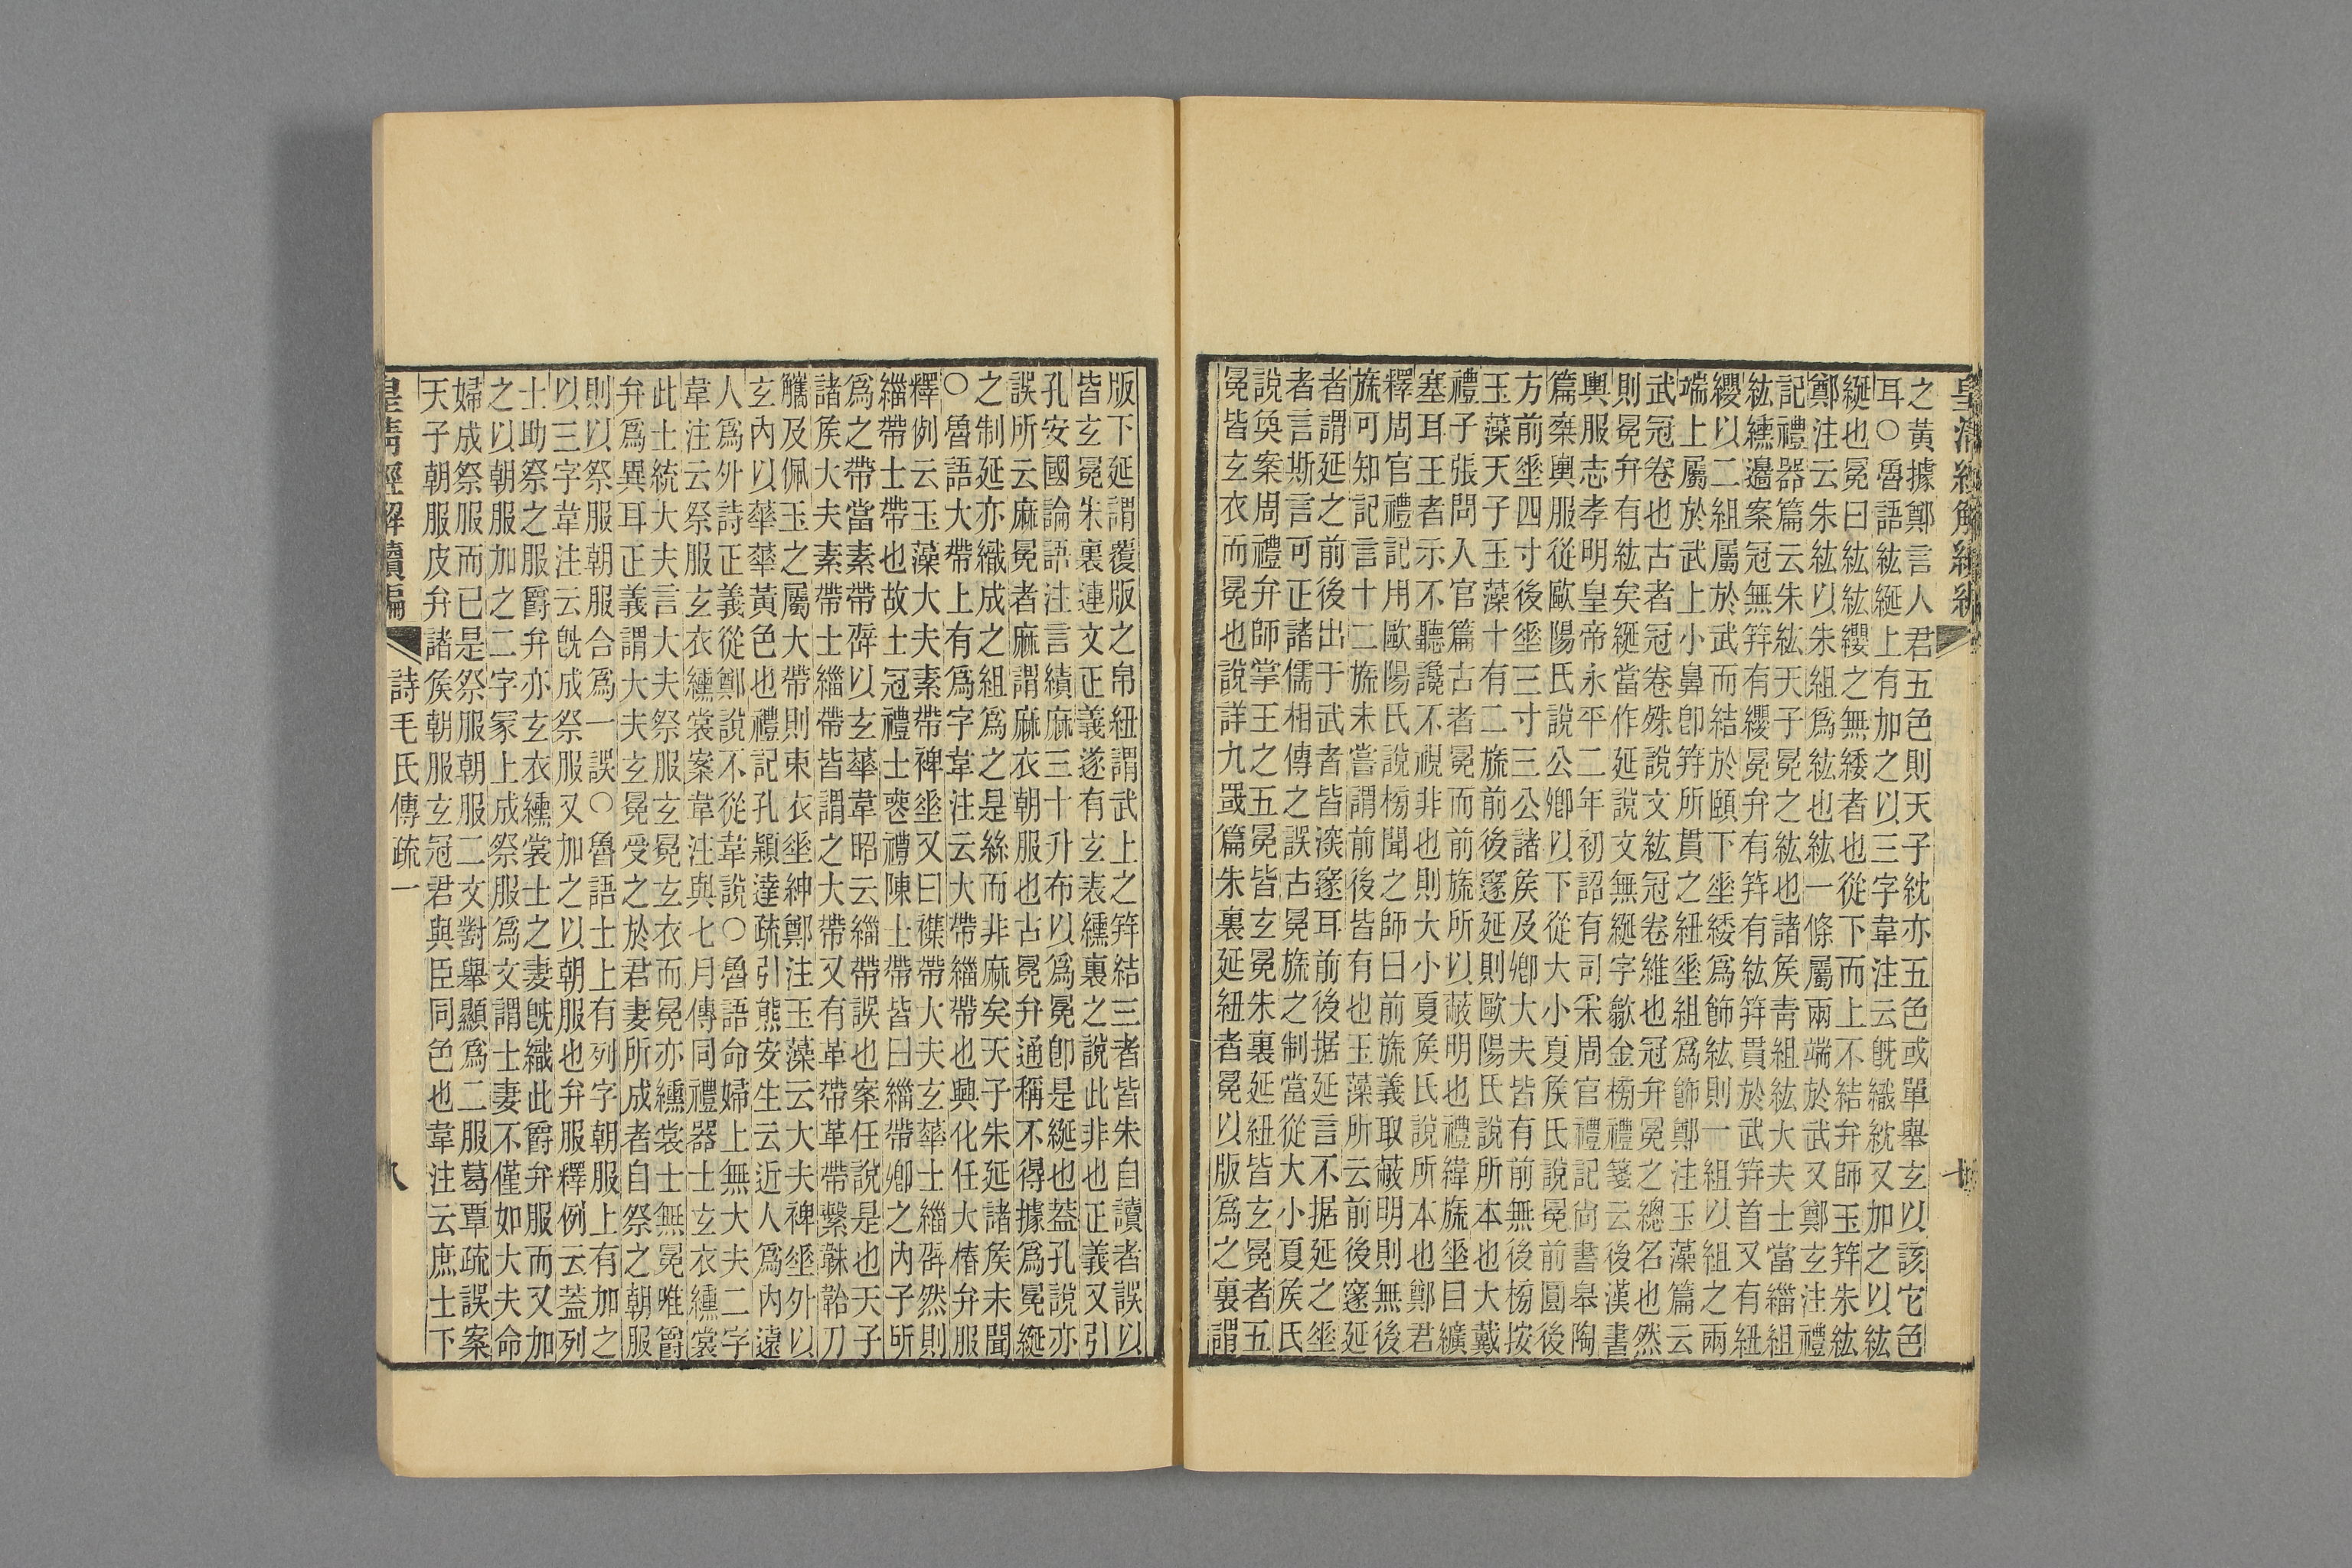 皇清經解續編
之黃據鄭言人君五色則天子紞亦五色或單舉玄以該它色
耳○魯語紘綖上有加之以三字韋注云旣織紞又加之以紘
綖也冕曰紘紘纓之無緌者也從下而上不結弁師玉筓朱紘
鄭注云朱紘以朱組爲紘也紘一條屬兩端於武又鄭玄注禮
記禮器篇云朱紘天子冕之紘也諸矦青組紘大夫士當緇組
紘纁邊案冠無筓有纓冕弁有筓有紘筓貫於武筓首又有紐
纓以二組屬於武而結於頤下垂緌爲飾紘則一組以組之兩
端上屬於武上小鼻卽筓所貫之紐垂組爲飾鄭注玉藻篇云
武冠卷也古者冠卷殊說文紘冠卷維也冠弁冕之總名也然
則冕弁有紘矣綖當作延說文無綖字歙金榜禮箋云後漢書
輿服志孝明皇帝永平二年初詔有司采周官禮記尙書皋陶
篇椉輿服從歐陽氏說公卿以下從大小夏矦氏說冕前圓後
方前垂四寸後垂三寸三公諸矦及卿大夫皆有前無後榜按
玉藻天子玉藻十有二旒前後邃延則歐陽氏說所本也大戴
禮子張問入官篇古者冕而前旒所以蔽明也禮緯旒垂目纊
塞耳王者示不聽讒不視非也則大小夏矦氏說所本也鄭君
釋周官禮記用歐陽氏說榜聞之師曰前旒義取蔽明則無後
旒可知記言十二旒未嘗謂前後皆有也玉藻所云前後邃延
者謂延之前後出于武者皆深邃耳前後据延言不据延之垂
者言斯言可正諸儒相傳之誤古冕旒之制當從大小夏矦氏
說奐案周禮弁師掌王之五冕皆玄冕朱裏延紐皆玄冕者五
冕皆玄衣而冕也說詳九罭篇朱裏延紐者冕以版爲之裏謂
版下延謂覆版之帛紐謂武上之筓結三者皆朱自讀者誤以
皆玄冕朱裏連文正義遂有玄表纁裏之說此非也正義又引
孔安國論語注言績麻三十升布以爲冕卽是綖也蓋孔說亦
誤所云麻冕者麻謂麻衣朝服也古冕弁通稱不得據爲冕綖
之制延亦織成之組爲之是絲而非麻矣天子朱延諸矦未聞
○魯語大帶上有爲字韋注云大帶緇帶也興化任大椿弁服
釋例云玉藻大夫素帶裨垂又曰襍帶大夫玄華士緇辟然則
緇帶士帶也故士冠禮士喪禮陳士帶皆曰緇帶卿之內子所
爲之帶當素帶辟以玄華韋昭云緇帶誤也案任說是也天子
諸矦大夫素帶士緇帶皆謂之大帶又有革帶革帶繫韎韐刀
觿及佩玉之屬大帶則束衣垂紳鄭注玉藻云大夫裨垂外以
玄內以華華黃色也禮記孔穎達疏引熊安生云近人爲內遠
人爲外詩正義從鄭說不從韋說○魯語命婦上無大夫二字
韋注云祭服玄衣纁裳案韋注與七月傳同禮器士玄衣纁裳
此士統大夫言大夫祭服玄冕玄衣而冕亦纁裳士無冕唯爵
弁爲異耳正義謂大夫玄冕受之於君妻所成者自祭之朝服
則以祭服朝服合爲一誤○魯語士上有列字朝服上有加之
以三字韋注云旣成祭服又加之以朝服也弁服釋例云蓋列
士助祭之服爵弁亦玄衣纁裳士之妻旣織此爵弁服而又加
之以朝服加之二字冡上成祭服爲文謂士妻不僅如大夫命
婦成祭服而已是祭服朝服二文對舉顯爲二服葛覃疏誤案
天子朝服皮弁諸矦朝服玄冠君與臣同色也韋注云庶士下
皇清經解續編 詩毛氏傳疏一 八